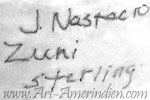 J. Nastacio
Zuni
Sterling
www.Art-Amerindien.com